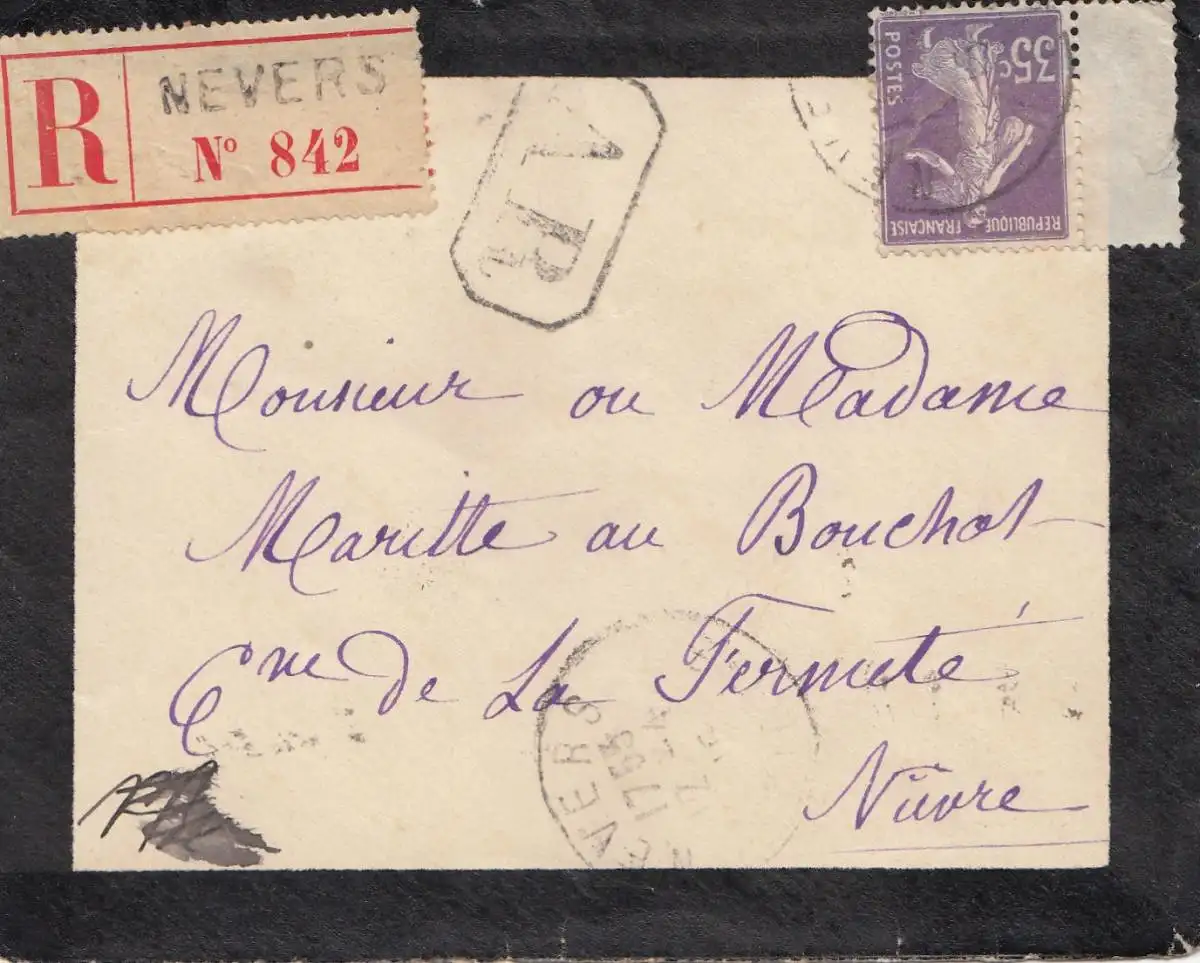 R NEVERS
Nº 842
AR
35c
POSTES
REPUBLIQUE FRANÇAISE
Monsieur ou Madame
Maritte au Bouchot
Cne de La Fermeté
Nièvre
NEVERS
17 55